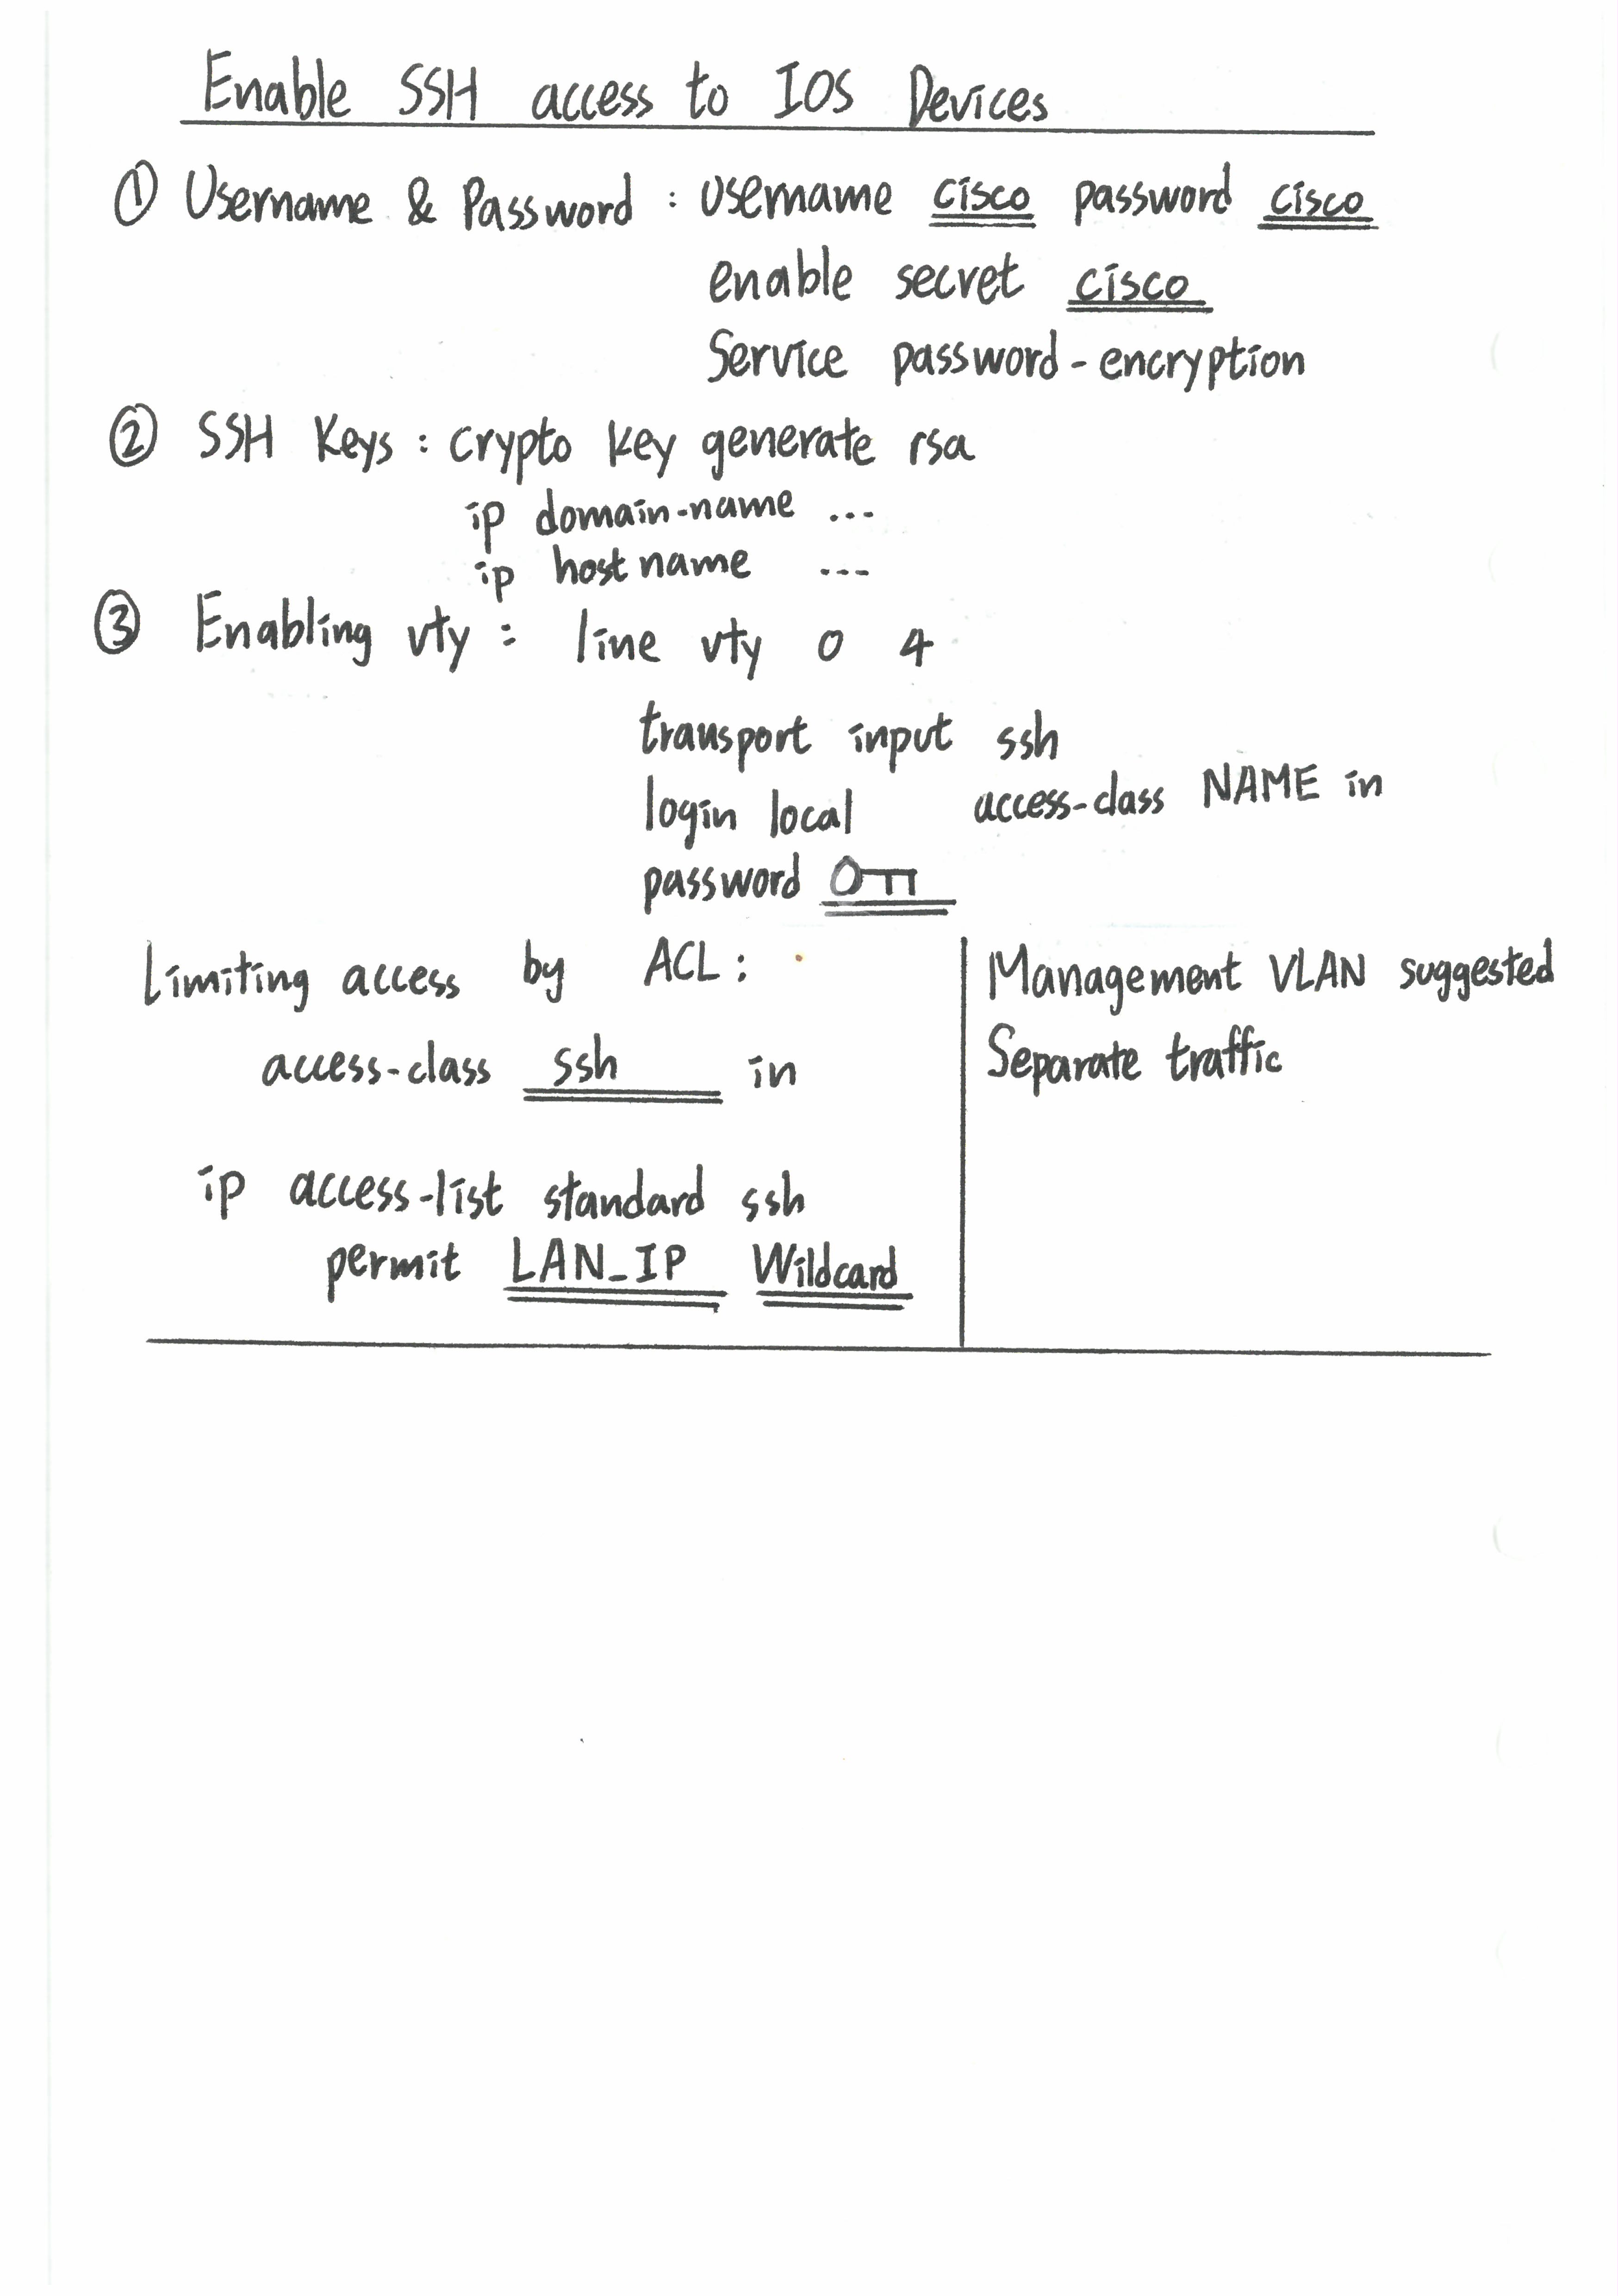 Enable SSH access to IOS Devices
① Username & Password : username cisco password cisco
enable secret cisco
Service password-encryption
② SSH Keys : crypto key generate rsa
ip domain-name ...
ip hostname ...
③ Enabling vty : line vty 0 4
transport input ssh
login local access-class NAME in
password
Limiting access by ACL :
access-class ssh in
ip access-list standard ssh
permit LAN_IP Wildcard
Management VLAN suggested
Separate traffic